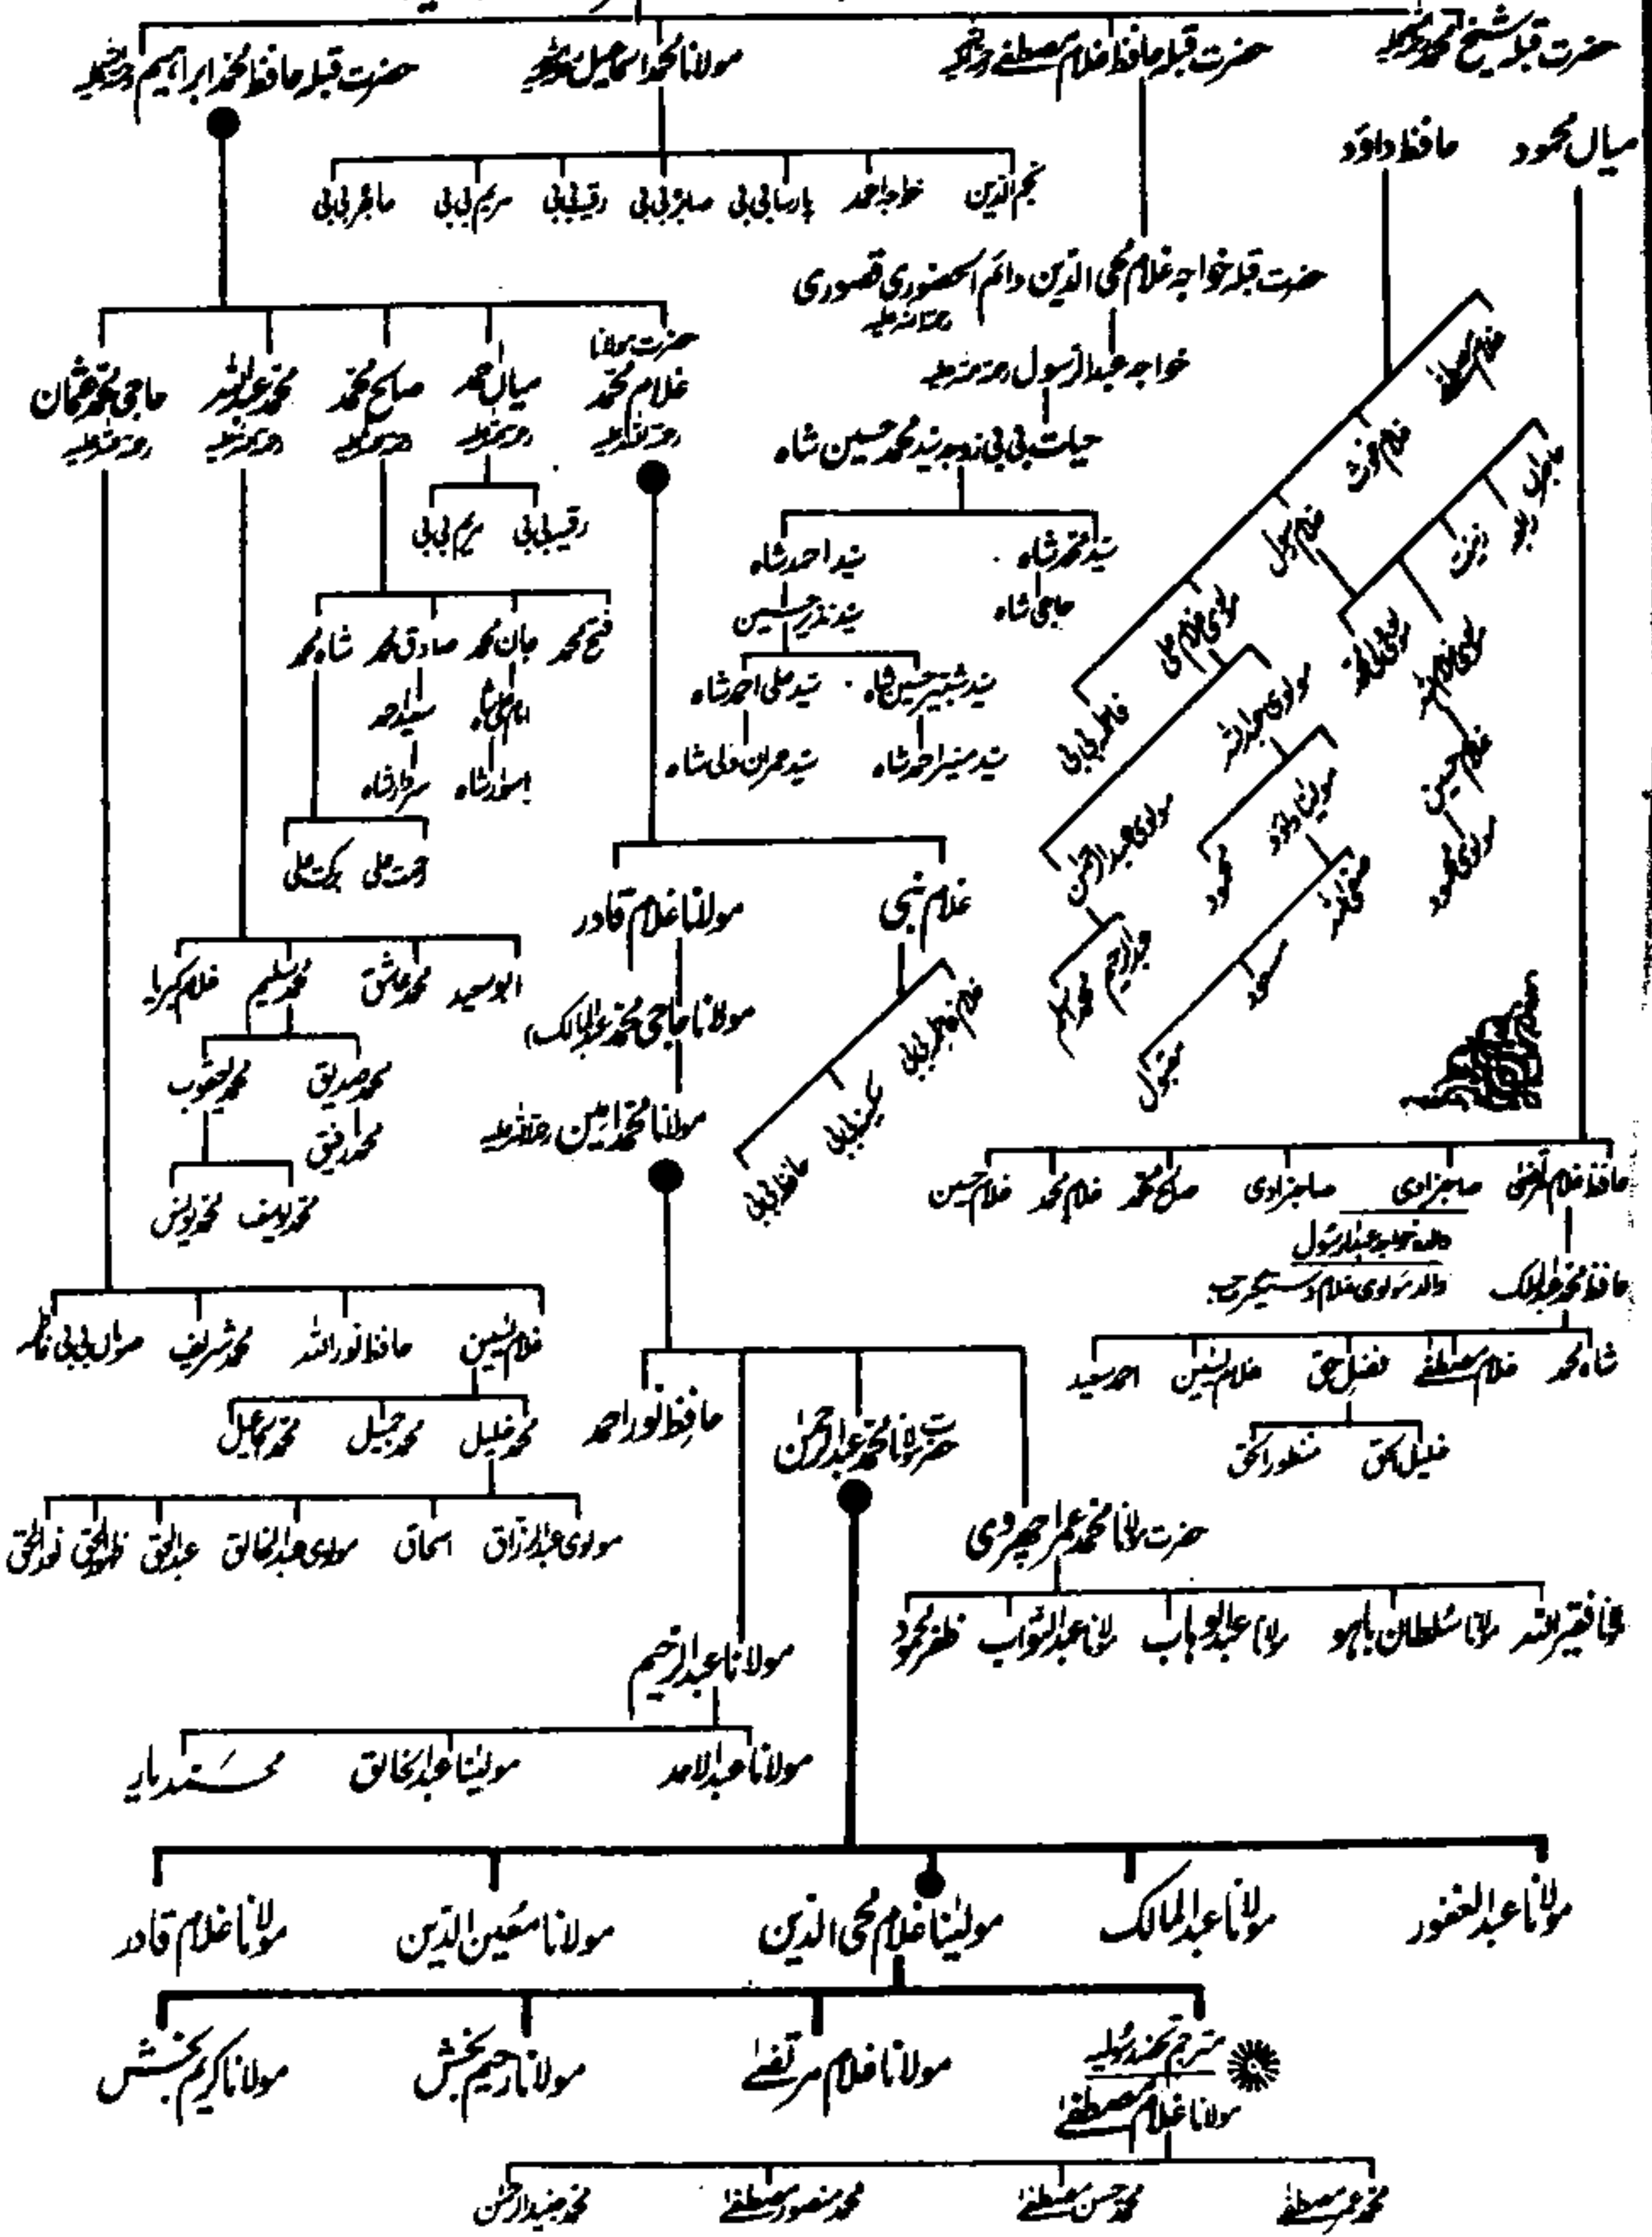 حضرت قبلہ شیخ محمد رحمۃ اللہ علیہ حضرت قبلہ حافظ غلام مصطفےٰ رحمۃ اللہ علیہ مولانا محمد اسماعیل رحمۃ اللہ علیہ حضرت قبلہ حافظ محمد ابراہیم رحمۃ اللہ علیہ
میاں محمود حافظ داؤد
نجم الدین خواجہ احمد پارسا بی بی صابرہ بی بی رقیہ بی بی مریم بی بی ہاجرہ بی بی
حضرت قبلہ خواجہ غلام محی الدین دائم الحضوری قصوری
رحمۃ اللہ علیہ
خواجہ عبدالرسول رحمۃ اللہ علیہ
حیات بی بی زوجہ سید محمد حسین شاہ
سید محمد شاہ سید احمد شاہ
حاجی شاہ سید نذر حسین
سید شبیر حسین شاہ سید علی احمد شاہ
سید منیر احمد شاہ سید عمران ولی شاہ
حضرت مولانا
غلام محمد میاں محمد صالح محمد محمد عبداللہ حاجی محمد عثمان
رحمۃ اللہ علیہ رحمۃ اللہ علیہ رحمۃ اللہ علیہ رحمۃ اللہ علیہ رحمۃ اللہ علیہ
رقیہ بی بی مریم بی بی
فتح محمد جان محمد صادق محمد شاہ محمد
امام علی شاہ سعید احمد
سردار شاہ
رحمت علی برکت علی
غلام رسول
مولوی غلام علی
فاطمہ بی بی
مولوی عبداللہ
مولوی عبدالرحمٰن
مولوی داؤد
محمود
غلام حسین
مولوی محمود
مسعود
مقبول
غلام نبی مولانا غلام قادر
مولانا حاجی محمد عبدالمالک
مولانا محمد امین رحمۃ اللہ علیہ
غلام فاطمہ بی بی
حافظہ بی بی
ابوسعید محمد عاشق محمد سلیم غلام کبریا
محمد صدیق محمد یعقوب
محمد رفیق
محمد یوسف محمد یونس
حافظ غلام مرتضٰی صاحبزادی صاحبزادی صالح محمد غلام محمد غلام حسین
والدہ خواجہ عبدالرسول
والدہ مولوی غلام دستگیر صاحب
حافظ محمد عبدالمالک
شاہ محمد غلام مصطفےٰ فضل حق غلام یٰسین احمد سعید
خلیل الحق منظور الحق
غلام یٰسین حافظ نور اللہ محمد شریف
محمد خلیل محمد جمیل محمد اسماعیل
مولوی عبدالرزاق اسحاق مولوی عبدالخالق عبدالحق ظہور الحق نور الحق
حضرت مولانا محمد عبدالرحمٰن حافظ نور احمد
حضرت مولانا محمد عمر اچھروی
مولانا فقیر اللہ مولانا سلطان باہو مولانا عبدالوہاب مولانا عبدالتواب ظفر محمود
مولانا عبدالرحیم
مولانا عبدالاحد مولینا عبدالخالق محمد یار
مولانا عبدالغفور مولانا عبدالمالک مولینا غلام محی الدین مولانا معین الدین مولانا غلام قادر
مترجم تحفہ رسولیہ
مولانا غلام مصطفےٰ مولانا غلام مرتضےٰ مولانا رحیم بخش مولانا کریم بخش
محمد عمر مصطفےٰ محمد حسن مصطفےٰ محمد منصور مصطفےٰ محمد جنید الرحمٰن